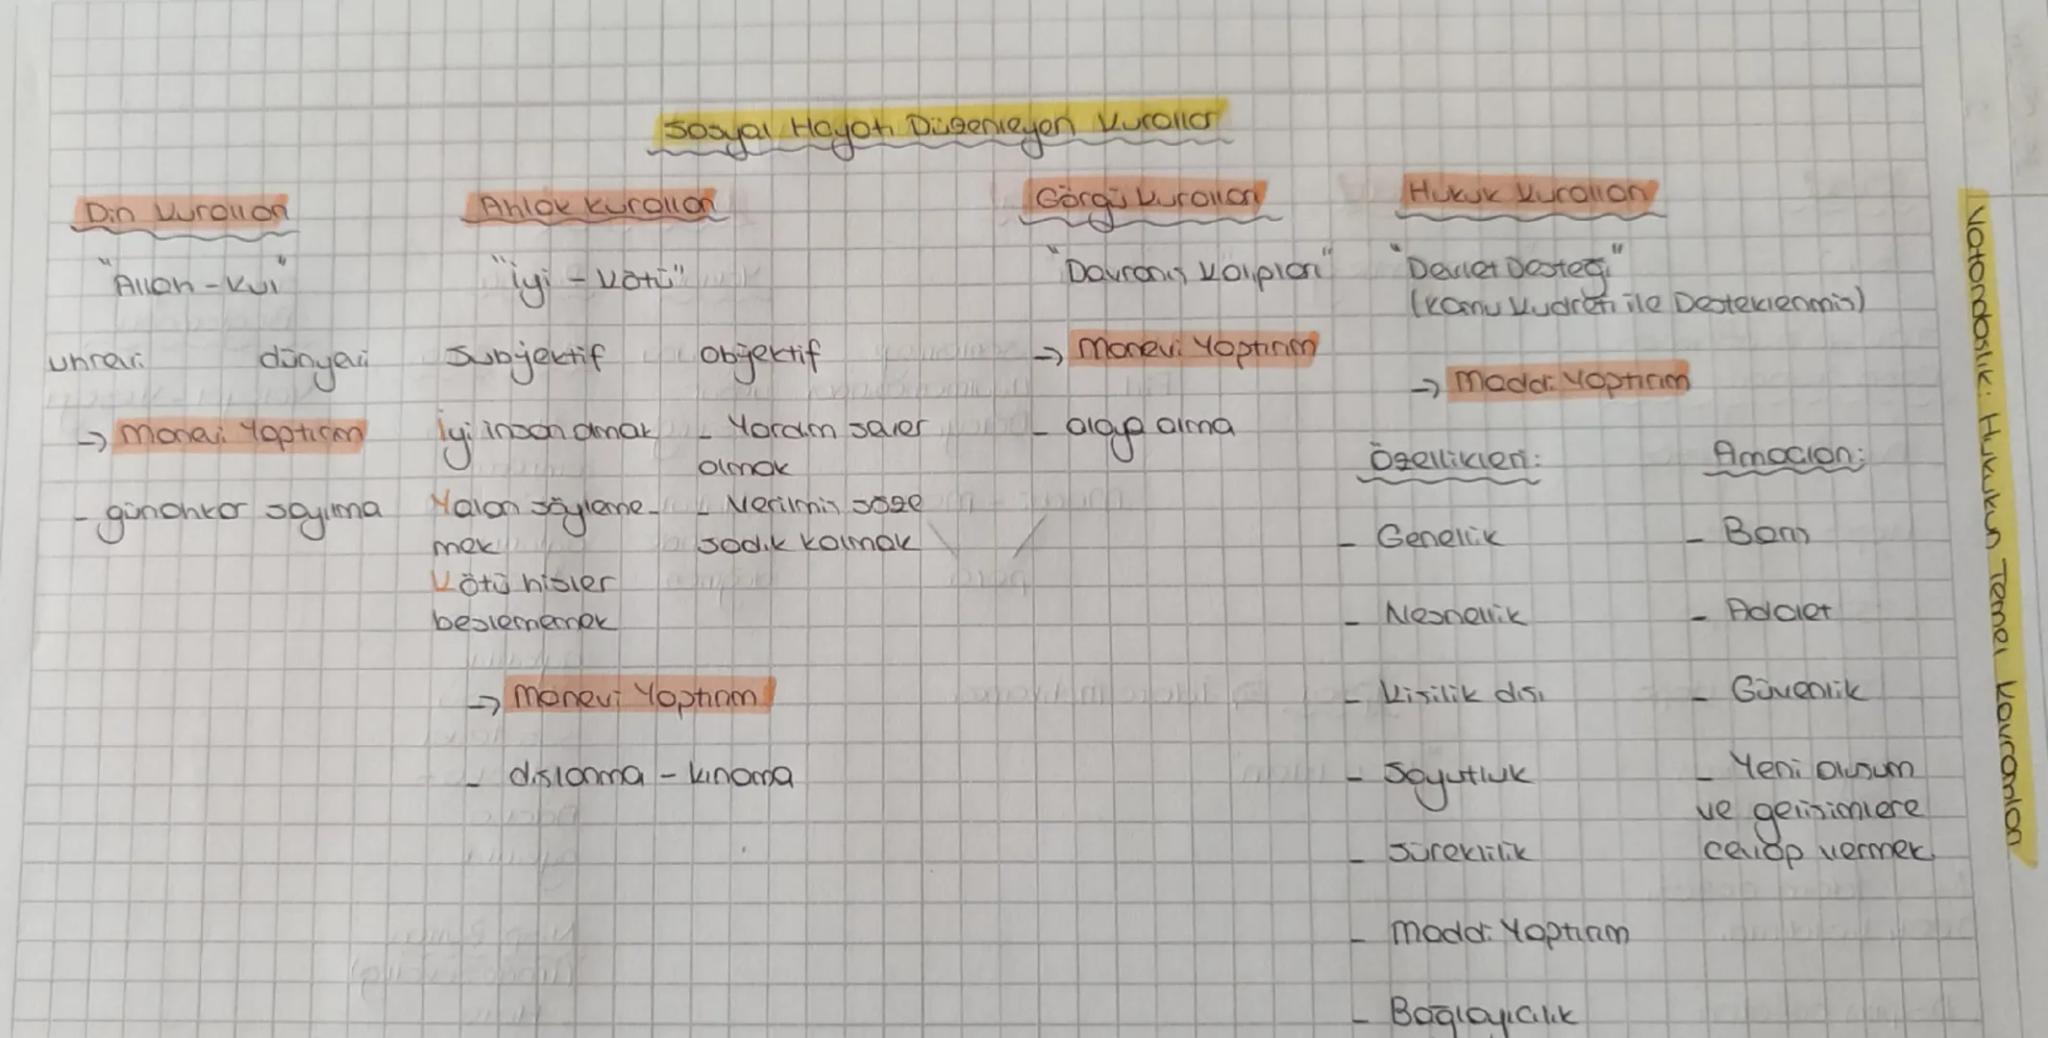 Sosyal Hayatı Düzenleyen Kurallar
Din Kuralları
"Allah - Kul"
uhrevi dünyevi
→ Manevi Yaptırım
- günahkar sayılma
Ahlak Kuralları
"iyi - kötü"
Subjektif
İyi insan olmak
Yalan söyleme-
mek
Kötü hisler
beslememek
objektif
- Yardım sever
olmak
- Verilmiş söze
sadık kalmak
→ Manevi Yaptırım
- dışlanma - kınama
Görgü Kuralları
"Davranış Kalıpları"
→ Manevi Yaptırım
- alaya alma
Hukuk Kuralları
"Devlet Desteği"
(Kamu Kudreti ile Desteklenmiş)
→ Maddi Yaptırım
Özellikleri:
- Genellik
- Nesnellik
- Kişilik dışı
- Soyutluk
- Süreklilik
- Maddi Yaptırım
- Bağlayıcılık
Amaçları:
- Barış
- Adalet
- Güvenlik
- Yeni oluşum
ve gelişimlere
cevap vermek
Vatandaşlık: Hukukun Temel Kavramları